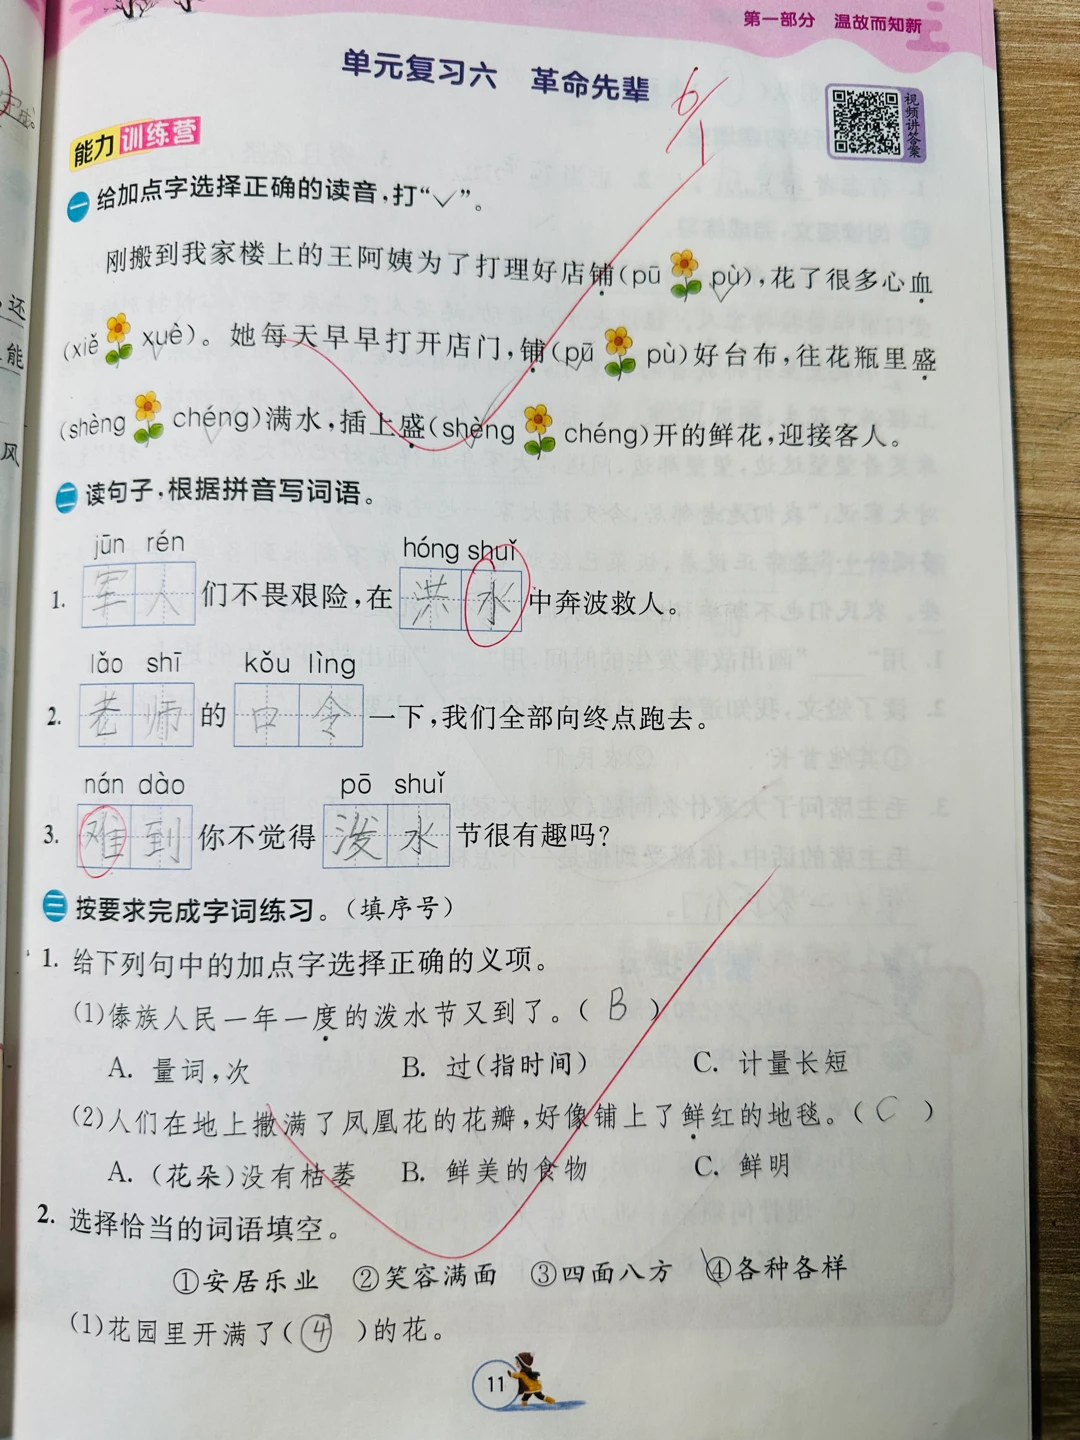 第一部分 温故而知新
单元复习六 革命先辈
6/1
视频讲答案
能力训练营
一 给加点字选择正确的读音,打“✓”。
刚搬到我家楼上的王阿姨为了打理好店铺(pū pù),花了很多心血
(xiě xuè)。她每天早早打开店门,铺(pū pù)好台布,往花瓶里盛
(shèng chéng)满水,插上盛(shèng chéng)开的鲜花,迎接客人。
二 读句子,根据拼音写词语。
jūn rén hóng shuǐ
1. 军人们不畏艰险,在洪水中奔波救人。
lǎo shī kǒu lìng
2. 老师的口令一下,我们全部向终点跑去。
nán dào pō shuǐ
3. 难到你不觉得泼水节很有趣吗?
三 按要求完成字词练习。(填序号)
1. 给下列句中的加点字选择正确的义项。
(1)傣族人民一年一度的泼水节又到了。( B )
A. 量词,次 B. 过(指时间) C. 计量长短
(2)人们在地上撒满了凤凰花的花瓣,好像铺上了鲜红的地毯。( C )
A. (花朵)没有枯萎 B. 鲜美的食物 C. 鲜明
2. 选择恰当的词语填空。
①安居乐业 ②笑容满面 ③四面八方 ④各种各样
(1)花园里开满了( ④ )的花。
11
还
能
风